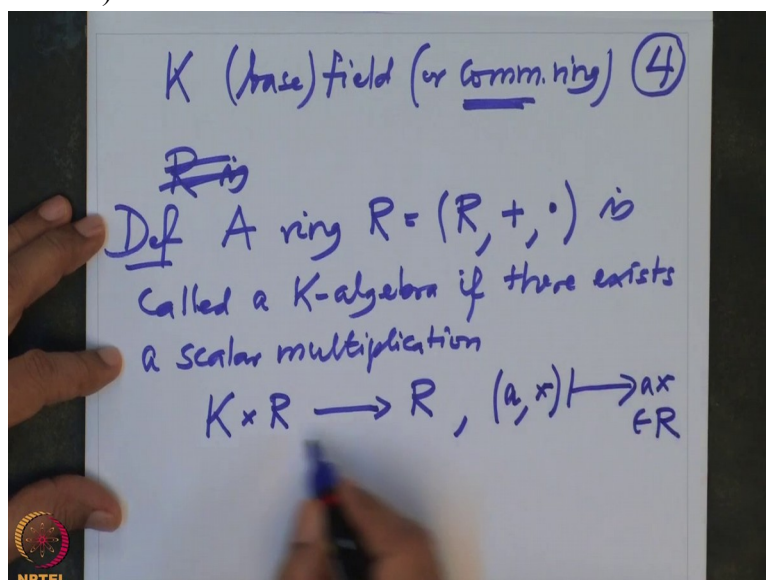 K (base) field (or comm. ring) 4
R is
Def A ring R = (R, +, ·) is
called a K-algebra if there exists
a scalar multiplication
K × R ⟶ R , (a, x) ⟼ ax
∈ R
NPTEL